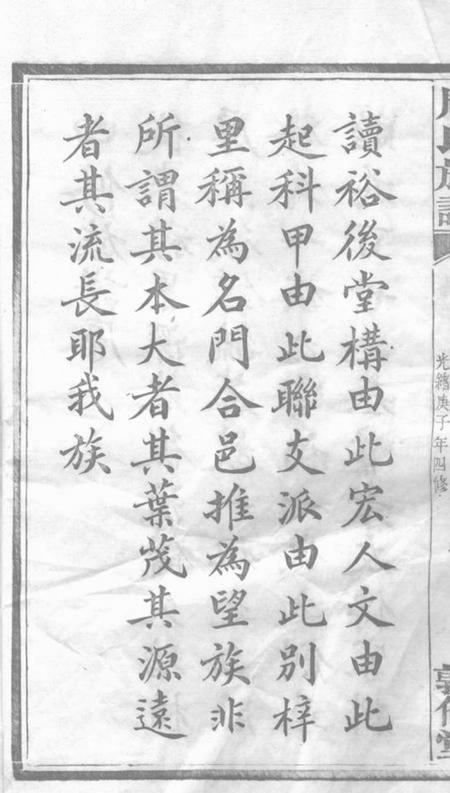 族譜
光緒庚子年四修
讀裕後堂構由此宏人文由此
起科甲由此聯支派由此別梓
里稱為名門合邑推為望族非
所謂其本大者其葉茂其源遠
者其流長耶我族